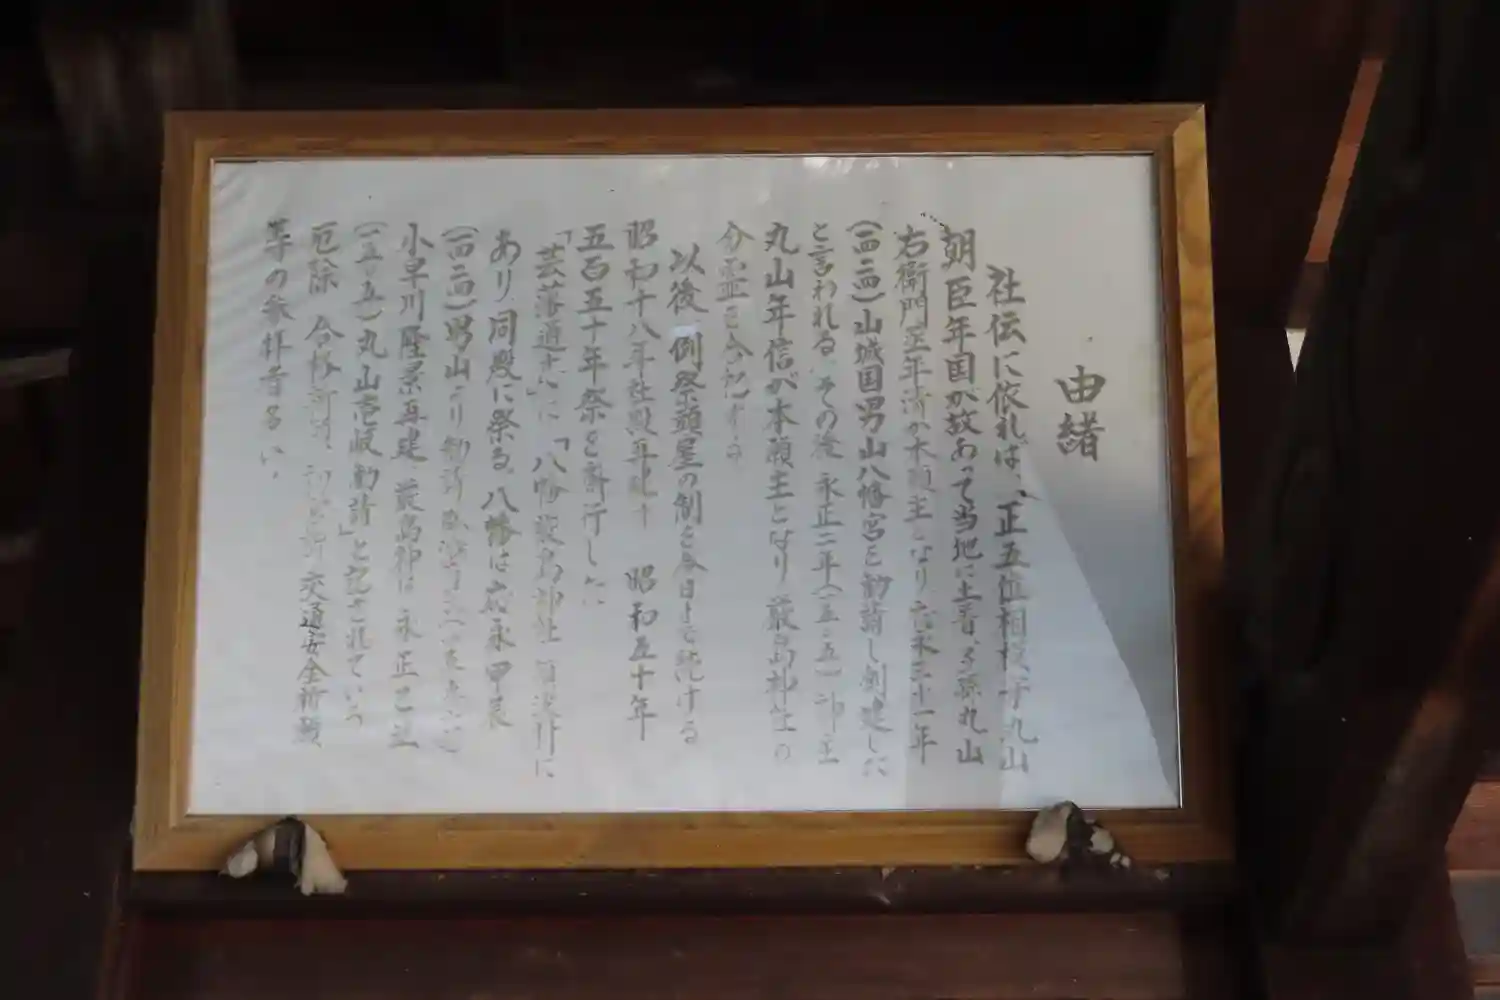 由緒
社伝に依れば、正五位相模守丸山
朝臣年国が故あって当地に土着、子孫丸山
右衛門 年清が本願主となり応永三十一年
(一四二四)山城国男山八幡宮を勧請し創建した
と言われる。その後 永正二年(一五〇五)神主
丸山年信が本願主となり 厳島神社の
分霊を合祀する
以後 例祭頭屋の制を今日まで続ける
昭和十八年社殿再建す 昭和五十年
五百五十年祭を斎行した
「芸藩通志」に「八幡厳島神社 に
あり、同殿に祭る。八幡は応永甲辰
(一四二四)男山より勧請
小早川隆景再建、厳島神は永正乙丑
(一五〇五)丸山壱岐勧請」と記されている
厄除 合格祈願、 交通安全祈願
等の参拝者多い。